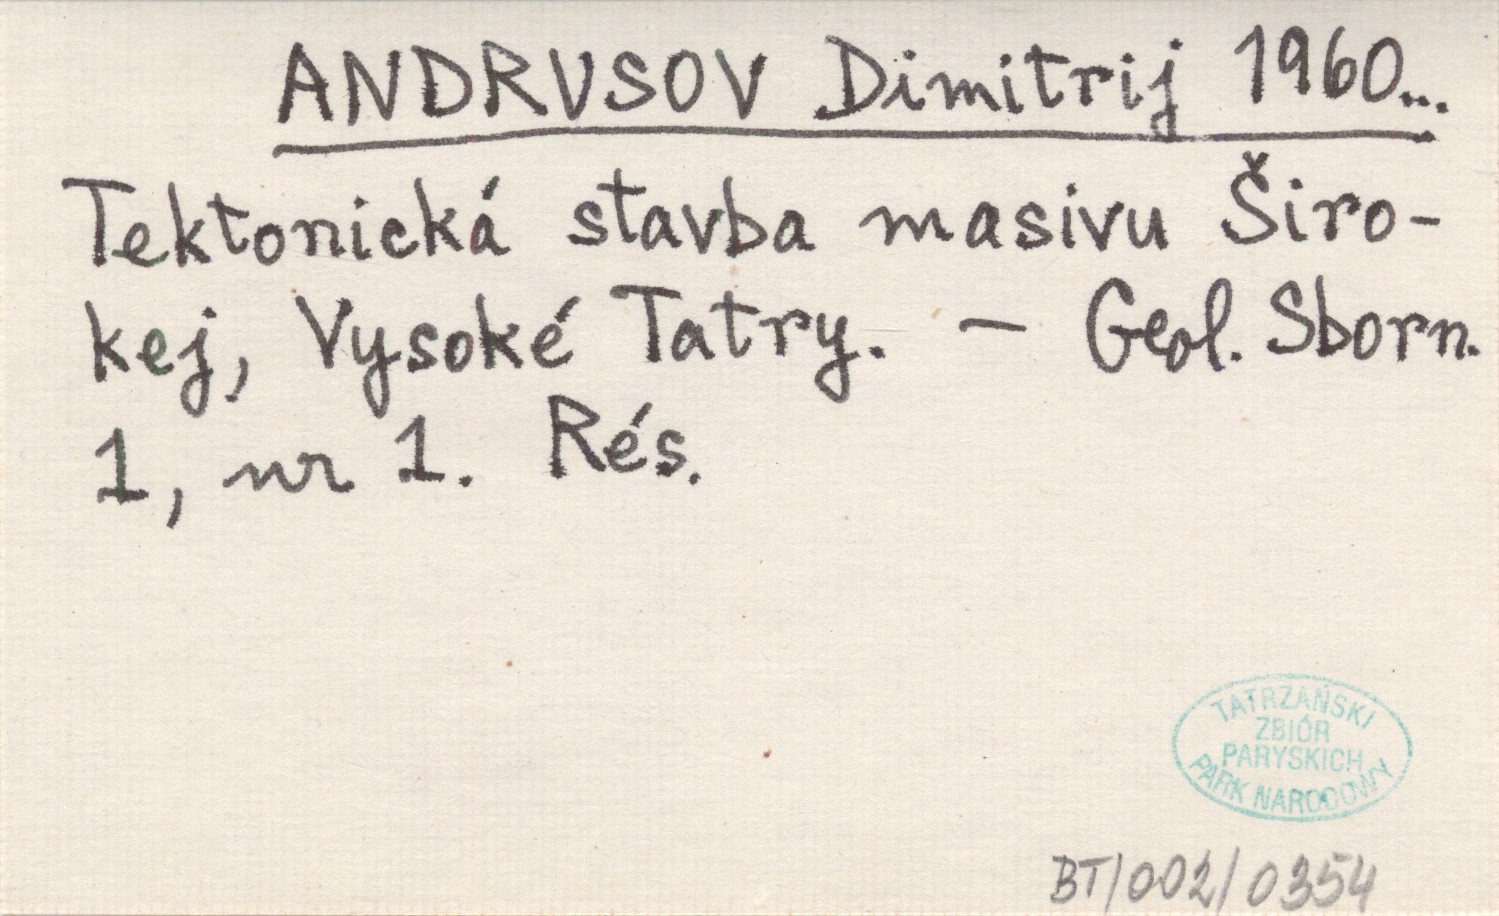 ANDRUSOV Dimitrij 1960...
Tektonická stavba masivu Širo-
kej, Vysoké Tatry. — Geol. Sborn.
1, nr 1. Rés.
TATRZAŃSKI
ZBIÓR
PARYSKICH
PARK NARODOWY
BT/002/0354